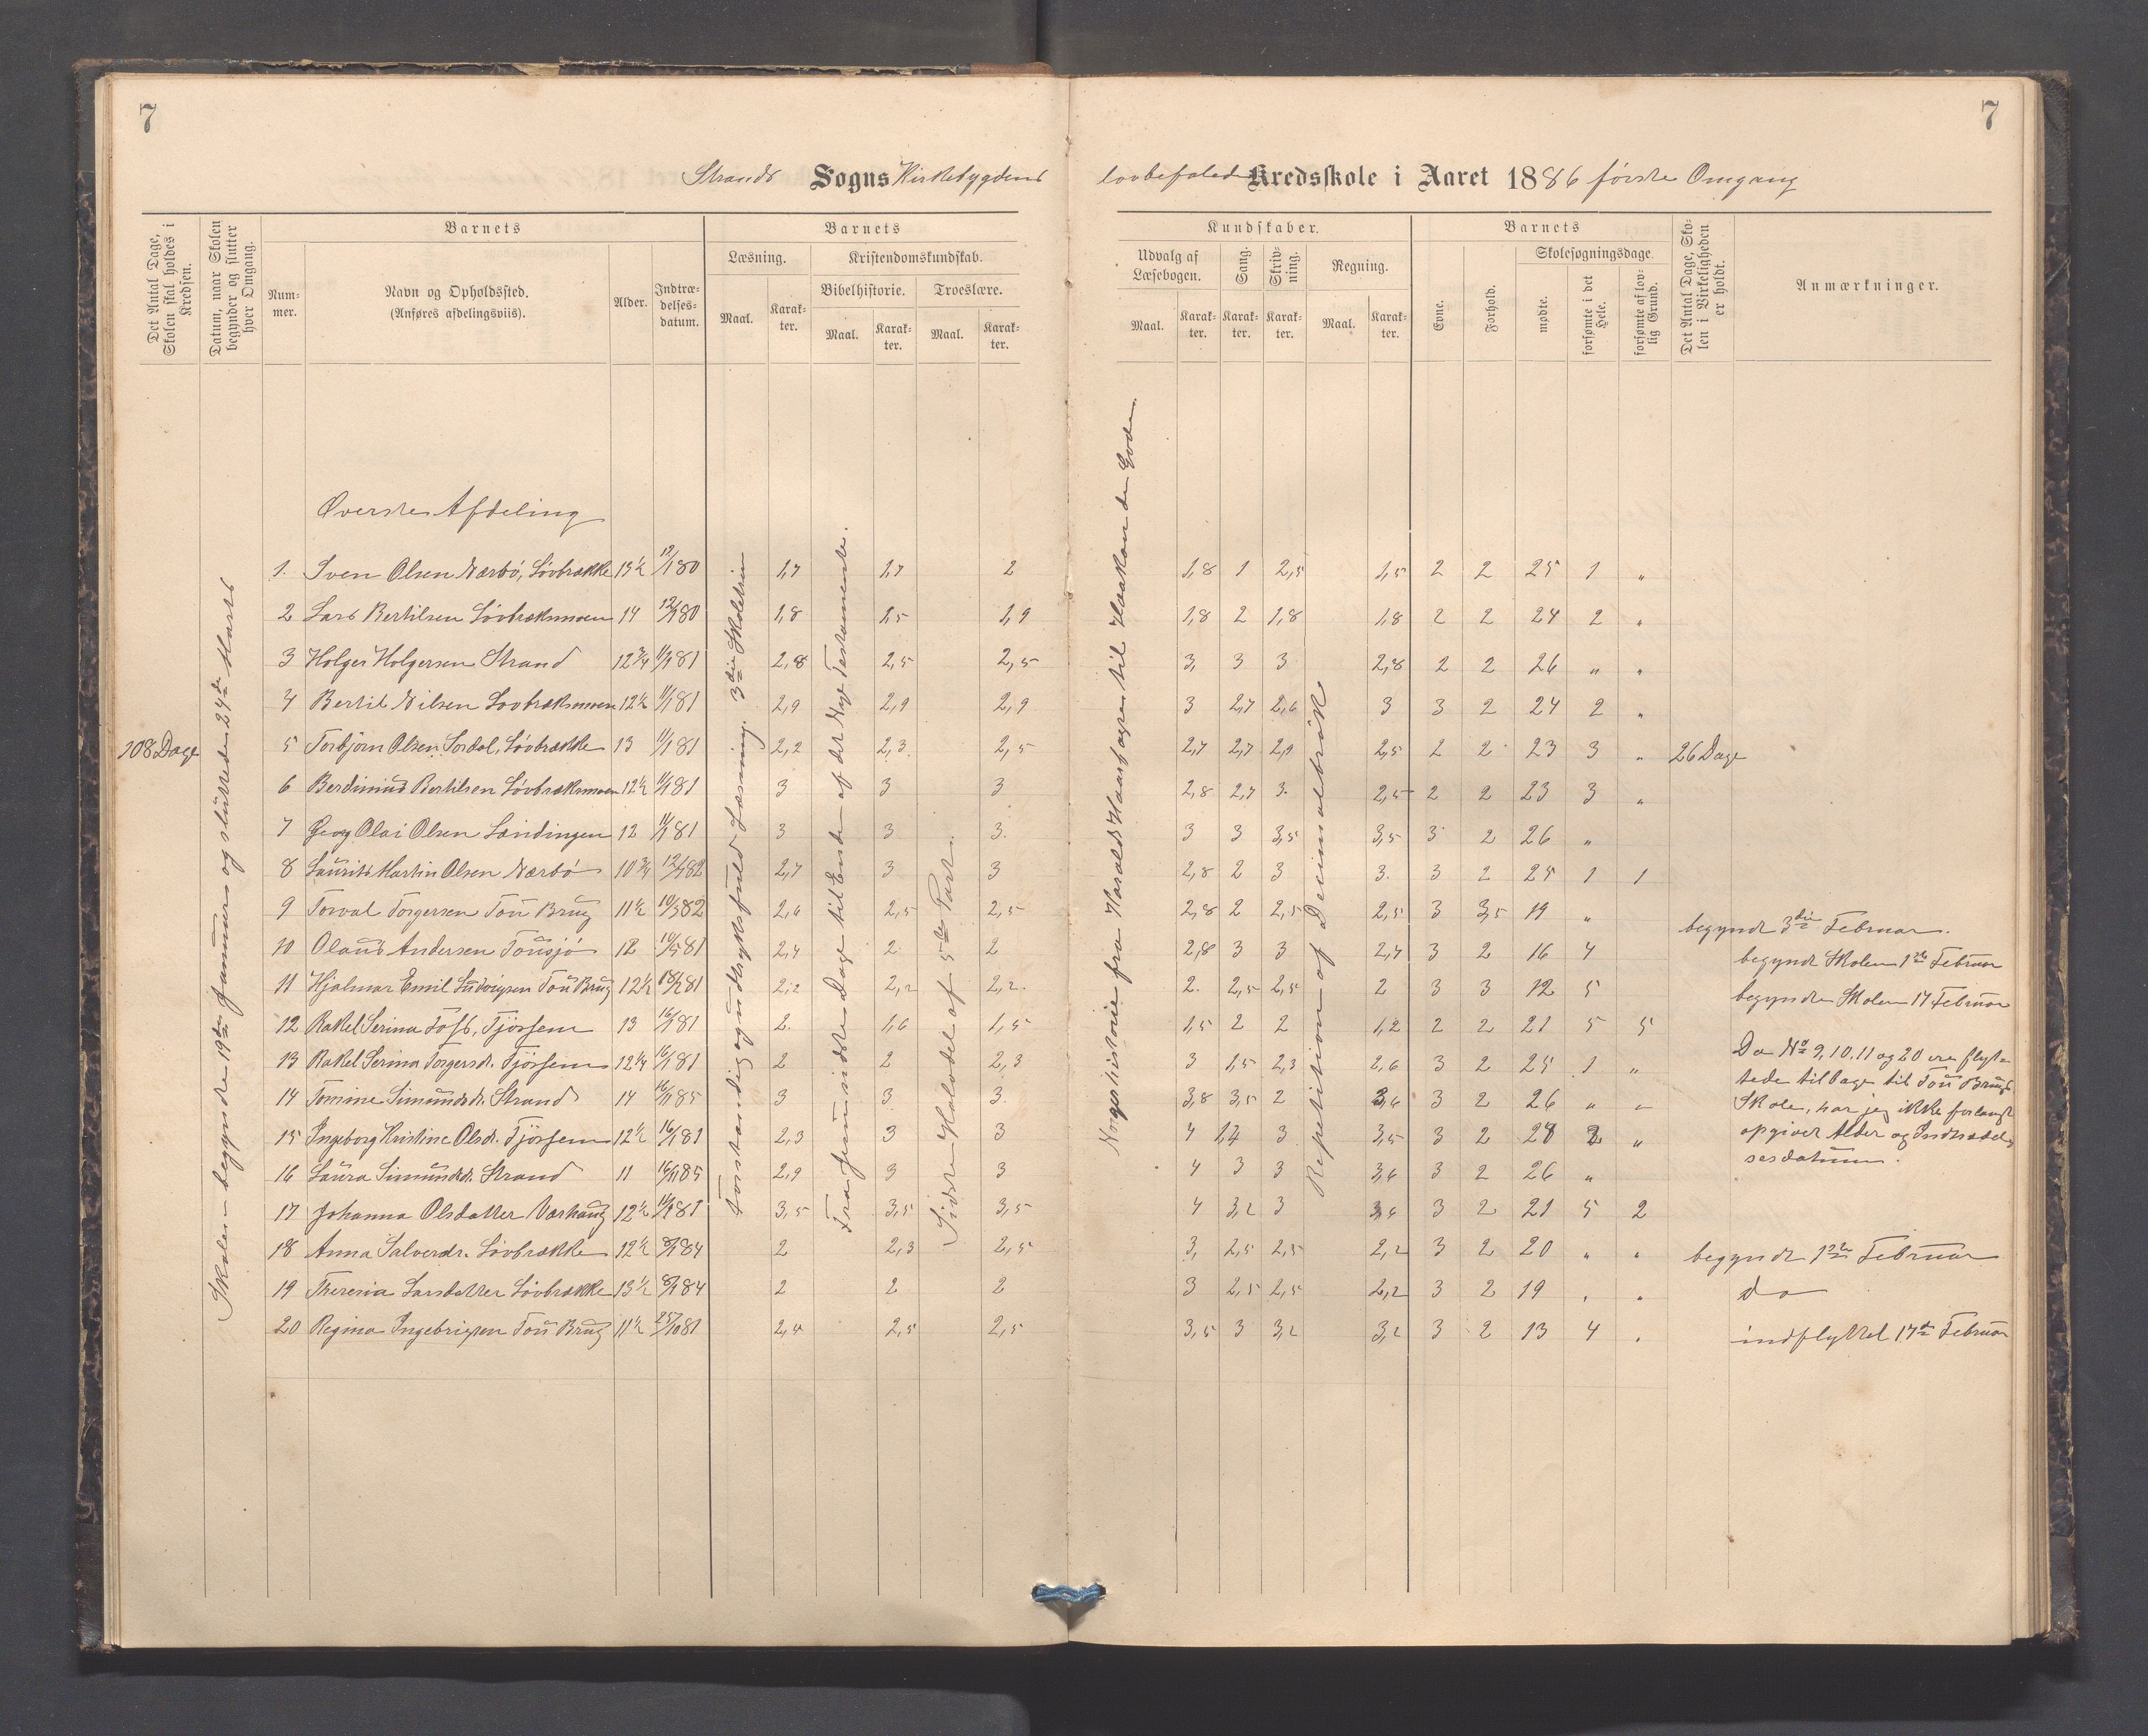 7
7
Strands Sogns Kirkebygdens lovbefalede Kredsskole i Aaret 1886 første Omgang
Det Antal Dage, Skolen skal holdes i Kredsen.
Datum, naar Skolen begynder og slutter hver Omgang.
Barnets
Num-mer.
Navn og Opholdssted.
(Anføres afdelingsviis).
Alder.
Indtræ-delses-datum.
Barnets
Læsning.
Maal.
Karak-ter.
Kristendomskundskab.
Bibelhistorie.
Maal.
Karak-ter.
Troeslære.
Maal.
Karak-ter.
Kundskaber.
Udvalg af Læsebogen.
Maal.
Karak-ter.
Sang.
Karak-ter.
Skriv-ning.
Karak-ter.
Regning.
Maal.
Karak-ter.
Barnets
Evne.
Forhold.
Skolesøgningsdage.
mødte.
forsømte i det Hele.
forsømte af lov-lig Grund.
Det Antal Dage, Sko-len i Virkeligheden er holdt.
Anmærkninger.
108 Dage
Skolen begyndte 19de Januar og sluttede 24de Marts
Forstandig og udtryksfuld Læsning. 3die Skoletrin
Fra Jesu sidste Dage til Enden af det Nye Testamente.
Sidste Halvdel af 5te Part.
Norgeshistorie fra Harald Haarfagre til Haakon den Gode.
Repetition af Decimalbrøk
26 Dage
Øverste Afdeling
1. Sven Olsen Nærbø, Løvbrække 13½ 12/1 80 1,7 1,7 2 1,8 1 2,5 1,5 2 2 25 1 "
2 Lars Bertilsen Løvbræksmoen 14 12/1 80 1,8 1,5 1,9 1,8 2 1,8 1,8 2 2 24 2 "
3 Holger Holgersen Strand 12¾ 11/1 81 2,8 2,5 2,5 3, 3 3 2,8 2 2 26 " "
4 Bertil Nilsen Løvbræksmoen 12½ 11/1 81 2,9 2,9 2,9 3 2,7 2,6 3 3 2 24 2 "
5 Torbjørn Olsen Sordal, Løvbrække 13 11/1 81 2,2 2,3 2,5 2,7 2,7 2,9 2,5 2 2 23 3 "
6 Berdinius Bertilsen Løvbræksmoen 12½ 11/1 81 3 3 3 2,8 2,7 3 2,5 2 2 23 3 "
7 Georg Olai Olsen Lændingen 12 11/1 81 3 3 3. 3 3 3,5 3,5 3 2 26 "
8 Laurits Martin Olsen Nærbø 10¾ 12/1 82 2,7 3 3 2,8 2 3 3. 3 2 25 1 1
9 Torval Torgersen Tou Brug 11½ 10/3 82 2,6 2,5 2,5 2,8 2 2,5 2,5 3 3,5 19 " begyndt 3die Februar.
10 Olaus Andersen Tousjø 12 10/5 81 2,4 2 2 2,8 3 3 2,7 3 2 16 4 begyndt Skolen 1ste Februar
11 Hjalmar Emil Ludvigsen Tou Brug 12½ 81 2,2 2,2 2,2. 2. 2,5 2,5 2 3 3 12 5 begyndte Skolen 17 Februar
12 Rakel Serina Tjøssem 13 16/1 81 2. 1,6 1,5 1,5 2 2 1,2 2 2 21 5 5
13 Rakel Serina Torgersdr. Tjøssem 12¼ 16/1 81 2 2 2,3 3 1,5 2,3 2,6 3 2 25 1 "
14 Tomine Simundsdr. Strand 14 16/11 85 3 3 3. 3,8 3,5 2 3,6 3 2 26 " "
15 Ingeborg Kristine Olsdr. Tjøssem 12½ 16/1 81 2,3 3 3 4 3 3,5 3 2 2 "
16 Laura Simundsdr. Strand 11 16/11 85 2,9 3 3 4 3 3 3,6 3 2 26 "
17 Johanna Olsdatter Varhaug 12½ 81 3,5 3,5 3,5 4 3,2 3 3,6 3 2 21 5 2
18 Anna Salvesdr. Løvbrække 12½ 8/1 84 2 2,3 2,5 3, 2,5 2,5 2,2 3 2 20 " " begyndt 1ste Februar
19 Theresia Larsdatter Løvbrække 13½ 8/1 84 2 2 2 3 2,5 2,5 2,2 3 2 19 " " do
20 Regina Ingebrigsen Tou Brug 11½ 25/10 81 2,4 2,5 2,5 3,5 3 3,2 3,2 3 2 13 4 " indflyttet 17de Februar
Da No 9, 10, 11 og 20 ere flyt-
tede tilbage til Tou Brugs
Skole, har jeg ikke forlangt
opgivet Alder og Indtrædel-
sesdatum.